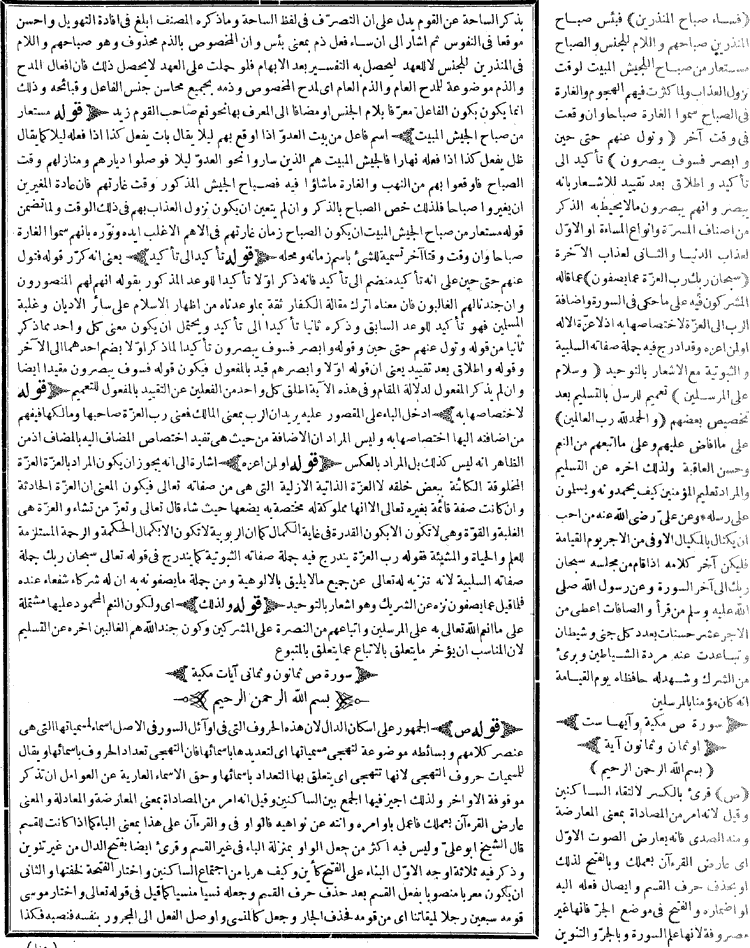 يذكر الساحة عن القوم يدل على ان التصرف فى لفظ الساحة وما ذكره المصنف ابلغ فى افادة التهويل واحسن
موقعا فى النفوس ثم اشار الى ان ساء فعل ذم بمعنى بئس وان المخصوص بالذم محذوف وهو صباحهم واللام
فى المنذرين للجنس لا للعهد ليحصل به التفسير بعد الابهام فلو حملت على العهد لا يحصل ذلك فان افعال المدح
والذم موضوعة للمدح العام والذم العام اى لمدح المخصوص وذمه بجميع محاسن جنس الفاعل وقبائحه وذلك
انما يكون بكون الفاعل معرّفا بلام الجنس او مضافا الى المعرف بها نحو نعم صاحب القوم زيد ﴿قوله مستعار
من صباح الجيش المبيت﴾ اسم فاعل من بيت العدوّ اذا اوقع بهم ليلا يقال بات يفعل كذا اذا فعله ليلا كما يقال
ظل يفعل كذا اذا فعله نهارا فالجيش المبيت هم الذين ساروا نحو العدوّ ليلا فوصلوا ديارهم ومنازلهم وقت
الصباح فاوقعوا بهم من النهب والغارة ماشاؤا فيه فصباح الجيش المذكور وقت غارتهم فان عادة المغيرين
ان يغيروا صباحا فلذلك خص الصباح بالذكر وان لم يتعين ان يكون نزول العذاب بهم فى ذلك الوقت ولما تضمن
قوله مستعار من صباح الجيش المبيت ان يكون الصباح زمان غارتهم فى الاهم الاغلب ايده ونوّره بانهم سموا الغارة
صباحا وان وقت وقتا آخر تسمية للشئ باسم زمانه ومحله ﴿قوله تأكيد الى تأكيد﴾ يعنى انه كرّر قوله فتول
عنهم حتى حين على انه تأكيد منضم الى تأكيد فانه ذكر اوّلا تأكيدا للوعد المذكور بقوله انهم لهم المنصورون
وان جندنا لهم الغالبون فان معناه اترك مقالة الكفار ثقة بما وعدناه من اظهار الاسلام على سائر الاديان وغلبة
المسلمين فهو تأكيد للوعد السابق وذكره ثانيا تأكيدا الى تأكيد ويحتمل ان يكون معنى كل واحد مما ذكر
ثانيا من قوله وتول عنهم حتى حين وقوله وابصر فسوف يبصرون تأكيدا لما ذكر اوّلا بضم احدهما الى الآخر
وقوله واطلاق بعد تقييد يعنى ان قوله اوّلا وابصرهم قيد بالمفعول فيكون قوله فسوف يبصرون مقيدا ايضا
وان لم يذكر المفعول لدلالة المقام وفى هذه الآية اطلق كل واحد من الفعلين عن التقييد بالمفعول للتعميم ﴿قوله
لاختصاصها به﴾ ادخل الباء على المقصور عليه يريد ان الرب بمعنى المالك فمعنى رب العزة صاحبها ومالكها فيفهم
من اضافته اليها اختصاصها به وليس المراد ان الاضافة من حيث هى تفيد اختصاص المضاف اليه بالمضاف اذ من
الظاهر انه ليس كذلك بل المراد بالعكس ﴿قوله او لمن اعزه﴾ اشارة الى انه يجوز ان يكون المراد بالعزة العزة
المخلوقة الكائنة ببعض خلقه لا العزة الذاتية الازلية التى هى من صفاته تعالى فيكون المعنى ان العزة الحادثة
وان كانت صفة قائمة بغيره تعالى الا انها مملوكة له مختصة به يضعها حيث شاء قال تعالى وتعز من تشاء والعزة هى
الغلبة والقوة وهى لا تكون الا بكون القدرة فى غاية الكمال كما ان الربوبية لا تكون الا بكمال الحكمة والرحمة المستلزمة
للعلم والحياة والمشيئة فقوله رب العزة يندرج فيه جملة صفاته الثبوتية كما يندرج فى قوله تعالى سبحان ربك جملة
صفاته السلبية لانه تنزيه له تعالى عن جميع ما لا يليق بالالوهية ومن جملة ما يصفونه به ان له شركاء شفعاء عنده
فلما قيل عما يصفون نزه عن الشريك وهو اشعار بالتوحيد ﴿قوله ولذلك﴾ اى ولكون النعم المحمود عليها مشتملة
على ما انعم الله تعالى به على المرسلين واتباعهم من النصرة على المشركين وكون جند الله هم الغالبين اخره عن التسليم
لان المناسب ان يؤخر ما يتعلق بالاتباع عما يتعلق بالمتبوع
﴿سورة ص ثمانون وثمانى آيات مكية﴾
﴿بسم الله الرحمن الرحيم﴾
﴿قوله ص﴾ الجمهور على اسكان الدال لان هذه الحروف التى فى اوآئل السور فى الاصل اسماء لمسمياتها التى هى
عنصر كلامهم وبسائطه موضوعة لتهجى مسمياتها اى لتعديدها باسمائها فان التهجى تعداد الحروف باسمائها ويقال
للمسميات حروف التهجى لانها تتهجى اى يتعلق بها التعداد باسمائها وحق الاسماء العارية عن العوامل ان تذكر
موقوفة الاواخر ولذلك اجيز فيها الجمع بين الساكنين وقيل انه امر من المصاداة بمعنى المعارضة والمعادلة والمعنى
عارض القرءآن بعملك فاعمل باوامره وانته عن نواهيه فالواو فى والقرءآن على هذا بمعنى الباء كما اذا كانت للقسم
قال الشيخ ابو على وليس فيه اكثر من جعل الواو بمنزلة الباء فى غير القسم وقرئ ايضا بفتح الدال من غير تنوين
وذكر فيه ثلاثة اوجه الاوّل البناء على الفتح كأين وكيف هربا من اجتماع الساكنين واختار الفتحة لخفتها والثانى
ان يكون معربا منصوبا بفعل القسم بعد حذف حرف القسم وجعله نسيا منسيا كما قيل فى قوله تعالى واختار موسى
قومه سبعين رجلا لميقاتنا اى من قومه فحذف الجار وجعل كالمنسى واوصل الفعل الى المجرور بنفسه فنصبه فكذا
﴿فساء صباح المنذرين﴾ فبئس صباح
المنذرين صباحهم واللام للجنس والصباح
مستعار من صباح الجيش المبيت لوقت
نزول العذاب ولما كثرت فيهم الهجوم والغارة
فى الصباح سموا الغارة صباحا وان وقعت
فى وقت آخر (وتول عنهم حتى حين
وابصر فسوف يبصرون) تأكيد الى
تأكيد واطلاق بعد تقييد للاشعار بانه
يبصر وانهم يبصرون مالا يحيط به الذكر
من اصناف المسرّة وانواع المساءة او الاوّل
لعذاب الدنيا والثانى لعذاب الآخرة
(سبحان ربك رب العزة عما يصفون) عما قاله
المشركون فيه على ما حكى فى السورة واضافة
الرب الى العزة لاختصاصها به اذ لا عزة الا له
او لمن اعزه وقد ادرج فيه جملة صفاته السلبية
والثبوتية مع الاشعار بالتوحيد (وسلام
على المرسلين) تعميم للرسل بالتسليم بعد
تخصيص بعضهم (والحمد لله رب العالمين)
على ما افاض عليهم وعلى من اتبعهم من النعم
وحسن العاقبة ولذلك اخره عن التسليم
والمراد تعليم المؤمنين كيف يحمدونه ويسلمون
على رسله وعن علىّ رضى الله عنه من احب
ان يكتال بالمكيال الاوفى من الاجر يوم القيامة
فليكن آخر كلامه اذا قام من مجلسه سبحان
ربك الى آخر السورة وعن رسول الله صلى
الله عليه وسلم من قرأ والصافات اعطى من
الاجر عشر حسنات بعدد كل جنى وشيطان
وتباعدت عنه مردة الشياطين وبرئ
من الشرك وشهد له حافظاه يوم القيامة
انه كان مؤمنا بالمرسلين
﴿سورة ص مكية وآيها ست﴾
﴿او ثمان وثمانون آية﴾
(بسم الله الرحمن الرحيم)
(ص) قرئ بالكسر لالتقاء الساكنين
وقيل لانه امر من المصاداة بمعنى المعارضة
ومنه الصدى فانه يعارض الصوت الاوّل
اى عارض القرءآن بعملك وبالفتح لذلك
او بحذف حرف القسم وايصال فعله اليه
او اضماره والفتح فى موضع الجرّ فانها غير
مصروفة لانها علم السورة وبالجرّ والتنوين